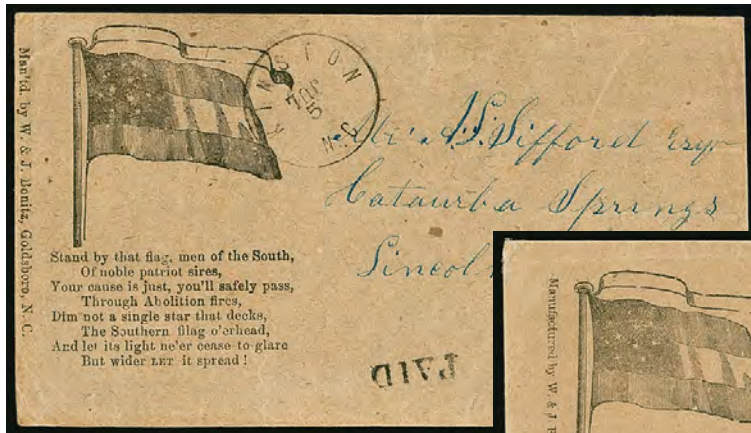 Man'fd. by W. & J. Bonitz, Goldsboro, N. C.
KINSTON
JUL
5
N.C.
Mr. A. S. Sifford Esqr
Catawrba Springs
Lincoln
Stand by that flag, men of the South,
Of noble patriot sires,
Your cause is just, you'll safely pass,
Through Abolition fires,
Dim not a single star that decks,
The Southern filag o'erhead,
And let its light ne'er cease to glare
But wider LET it spread!
Manufactured by W. & J.